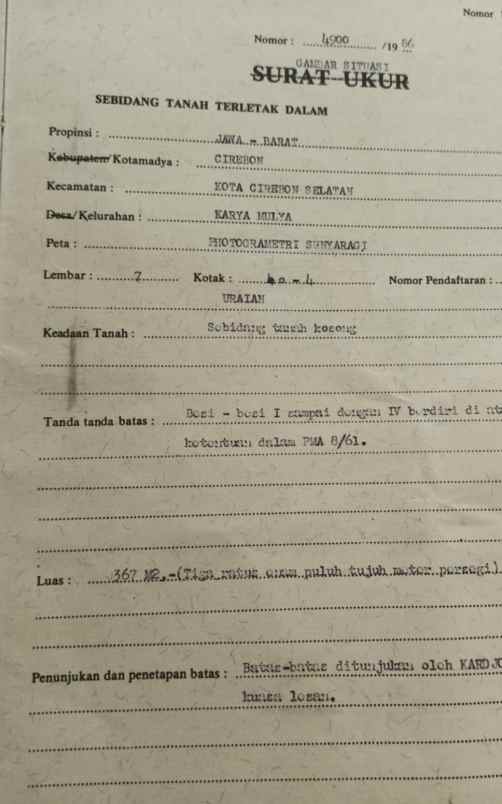 Nomor
Nomor : 4900 /19 86
GAMBAR SITUASI
SURAT UKUR
SEBIDANG TANAH TERLETAK DALAM
Propinsi : JAWA - BARAT.
Kabupaten/Kotamadya : CIREBON
Kecamatan : KOTA CIREBON SELATAN
Desa/Kelurahan : KARYA MULYA
Peta : PHOTOGRAMETRI SUNYARAGI
Lembar : 7 Kotak : Nomor Pendaftaran :
URAIAN
Keadaan Tanah : Sebidang tanah kosong
Tanda tanda batas : Besi - besi I sampai dengan IV berdiri di at
ketentuan dalam PMA 8/61.
Luas : 367 M2.-(Tiga ratus enam puluh tujuh meter persegi)
Penunjukan dan penetapan batas : Batas-batas ditunjukan oleh KARDJO
kuasa lesan.